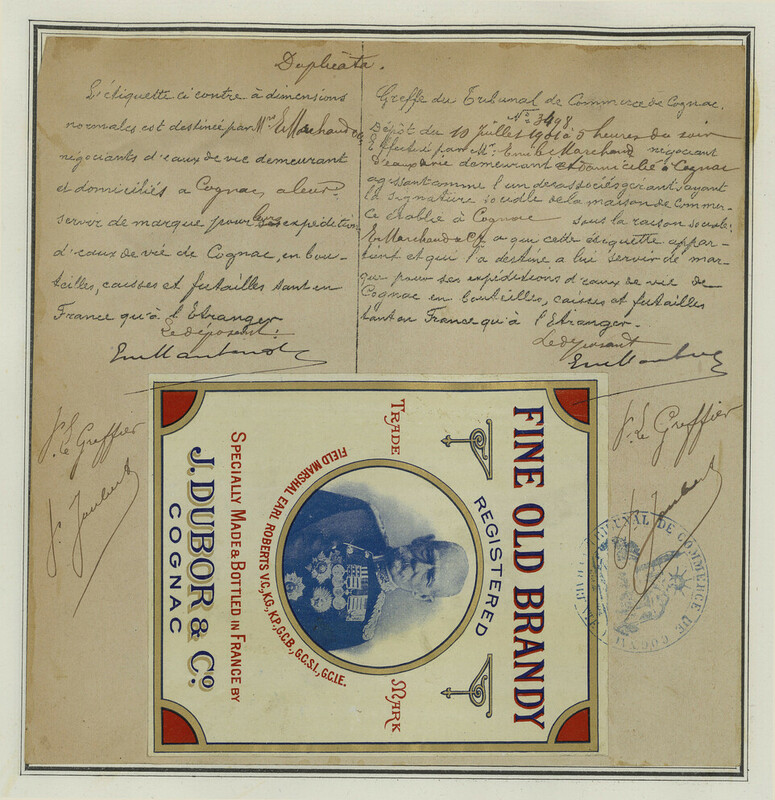 Duplicata.
L'étiquette ci contre à dimensions
normales est destinée par Mr Em Marchand &
négociants d'eaux de vie demeurant
et domiciliés a Cognac, a leur
servir de marque pour expédition
d'eaux de vie de Cognac, en bou-
teilles, caisses et futailles tant en
France qu'à l'Etranger
Le déposant:
P. Le Greffier
Greffe du Tribunal de Commerce de Cognac.
No 3498
Dépôt du 10 Juillet 1901 à 5 heures du soir
Effectué par Mr. Emile Marchand négociant
d'eaux de vie demeurant et domicilié à Cognac
agissant comme l'un des associés gérant ayant
la signature sociale de la maison de Commer-
ce établie à Cognac sous la raison sociale:
Em Marchand & Ce a que cette étiquette appar-
tient et qui l'a destiné a lui servir de mar-
que pour ses expéditions d'eaux de vie de
Cognac en bouteilles, caisses et futailles
tant en France qu'à l'Etranger.
Le déposant
P. Le Greffier
FINE OLD BRANDY
REGISTERED
TRADE MARK
FIELD MARSHAL EARL ROBERTS V.C., K.G., K.P., G.C.B., G.C.S.I., G.C.I.E.
SPECIALLY MADE & BOTTLED IN FRANCE BY
J. DUBOR & Co
COGNAC
TRIBUNAL DE COMMERCE DE COGNAC